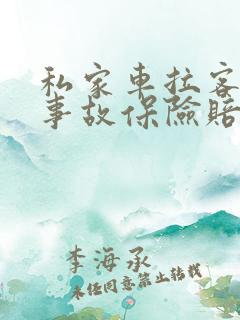 私家車拉客
事故保險賠
李海承
未经同意禁止转载